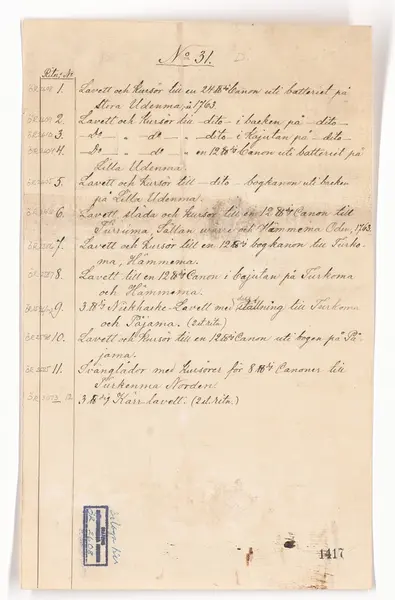 No 31.
Ritn: No
1. Lavett och Kursör till en 24 ℔ig Canon uti batteriet på
Stora Udenma, å 1763.
2. Lavett och Kursör till -dito- i backen på -dito-
3. -Do- " -do- " -dito i Kajutan på -dito-
4. -Do- " -do- " en 12℔ig Canon uti batteriet på
Lilla Udenma.
5. Lavett och Kursör till -dito- bogkanon uti backen
på Lilla Udenma.
6. Lavett, släda och Kursör till en 12℔ig Canon till
Turruma, Sällan och Hämmema Oden, 1763.
7. Lavett och Kursör till en 12℔ig bogkanon till Turko-
ma, Hämmema.
8. Lavett till en 12℔ig Canon i Cajutan på Turkoma
och Hämmema.
9. 3.℔ig Nickhacke-Lavett med ställning till Turkoma
och Pojama. (2 st. ritn.)
10. Lavett och Kursör till en 12℔ig Canon uti bogen på Po-
jama.
11. Svänglådor med Kursörer för 8 ℔ig Canoner till
Turkenma Norden.
a. 3.℔ig Kärr-lavett. (2 st. ritn.)
1417